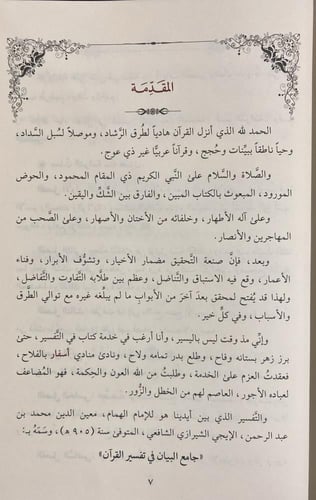 المقدّمة
الحمد لله الذي أنزل القرآن هادياً لطُرق الرَّشاد، وموصلاً لسُبل السَّداد،
وحياً ناطقاً ببيِّنات وحُجج، وقرآناً عربيًّا غير ذي عوج.
والصَّلاة والسَّلام على النَّبي الكريم ذي المقام المحمود، والحوض
المورود، المبعوث بالكتاب المبين، والفارق بين الشَّكِّ واليقين.
وعلى آله الأطهار، وخلفائه من الأختان والأصهار، وعلى الصَّحب من
المهاجرين والأنصار.
وبعد، فإنَّ صنعة التَّحقيق مضمار الأخيار، وتشوُّف الأبرار، وفناء
الأعمار، وقع فيه الاستباق والتَّناضل، وعظم بين طلَّابه التَّفاوت والتَّفاضل،
ولهذا قد يُفتح لمحقق بعدَ آخرَ من الأبوابِ ما لم يبلُغه غيره مع توالي الطُّرق
والأسباب، وفي كلٍّ خير.
وإنِّي مذ وقت ليس باليسير، وأنا أرغب في خدمة كتاب في التَّفسير، حتى
برز زهر بستانه وفاح، وطلع بدر تمامه ولاح، ونادى منادي أسفار بالفلاح،
فعقدتُ العزم على الخدمة، وطلبتُ من الله العون والحِكمة، فهو المُضاعف
لعباده الأجور، العاصم لهم من الخطل والزُّور.
والتَّفسير الذي بين أيدينا هو للإمام الهمام، معين الدين محمد بن
عبد الرحمن، الإيجي الشيرازي الشافعي، المتوفى سنة (٩٠٥ هـ)، وسَمَهُ بـ:
«جامع البيان في تفسير القرآن»
٧